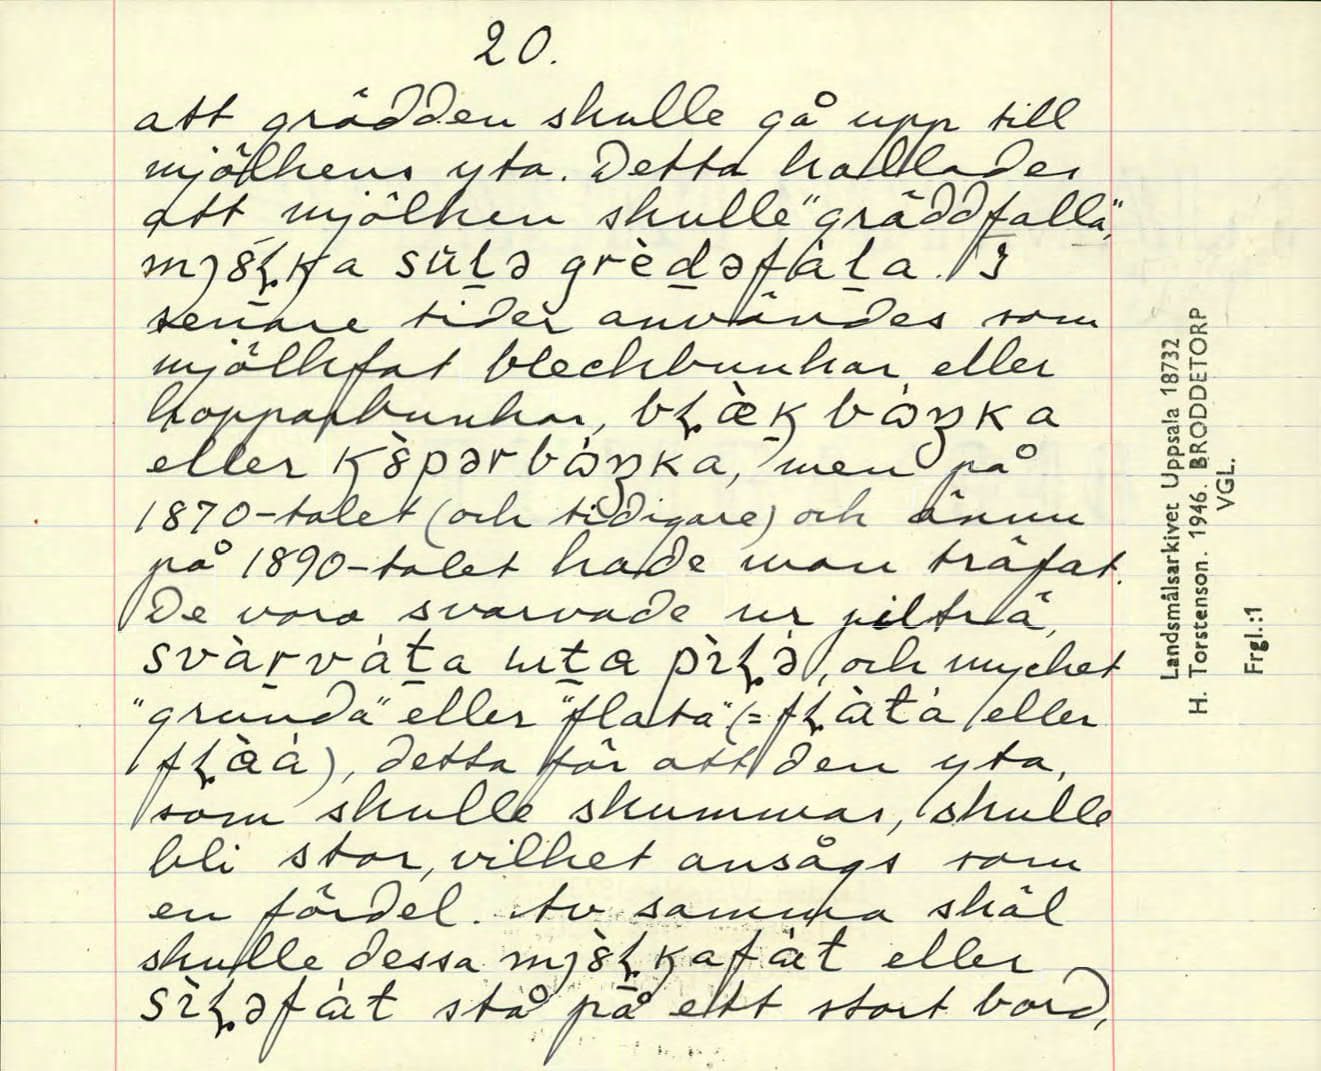 20.
att grädden skulle gå upp till
mjölkens yta. Detta kallades
att mjölken skulle "gräddfalla",
I
senare tider användes som
mjölkfat bleckbunkar eller
kopparbunkar,
eller men på
1870-talet (och tidigare) och ännu
på 1890-talet hade man träfat.
De voro svarvade ur pilträ,
och mycket
"grunda" eller "flata" (= eller
), detta för att den yta,
som skulle skummas, skulle
bli stor, vilket ansågs som
en fördel. Av samma skäl
skulle dessa eller
stå på ett stort bord,
Landsmålsarkivet Uppsala 18732
H. Torstenson. 1946. BRODDETORP
VGL.
Frgl.:1